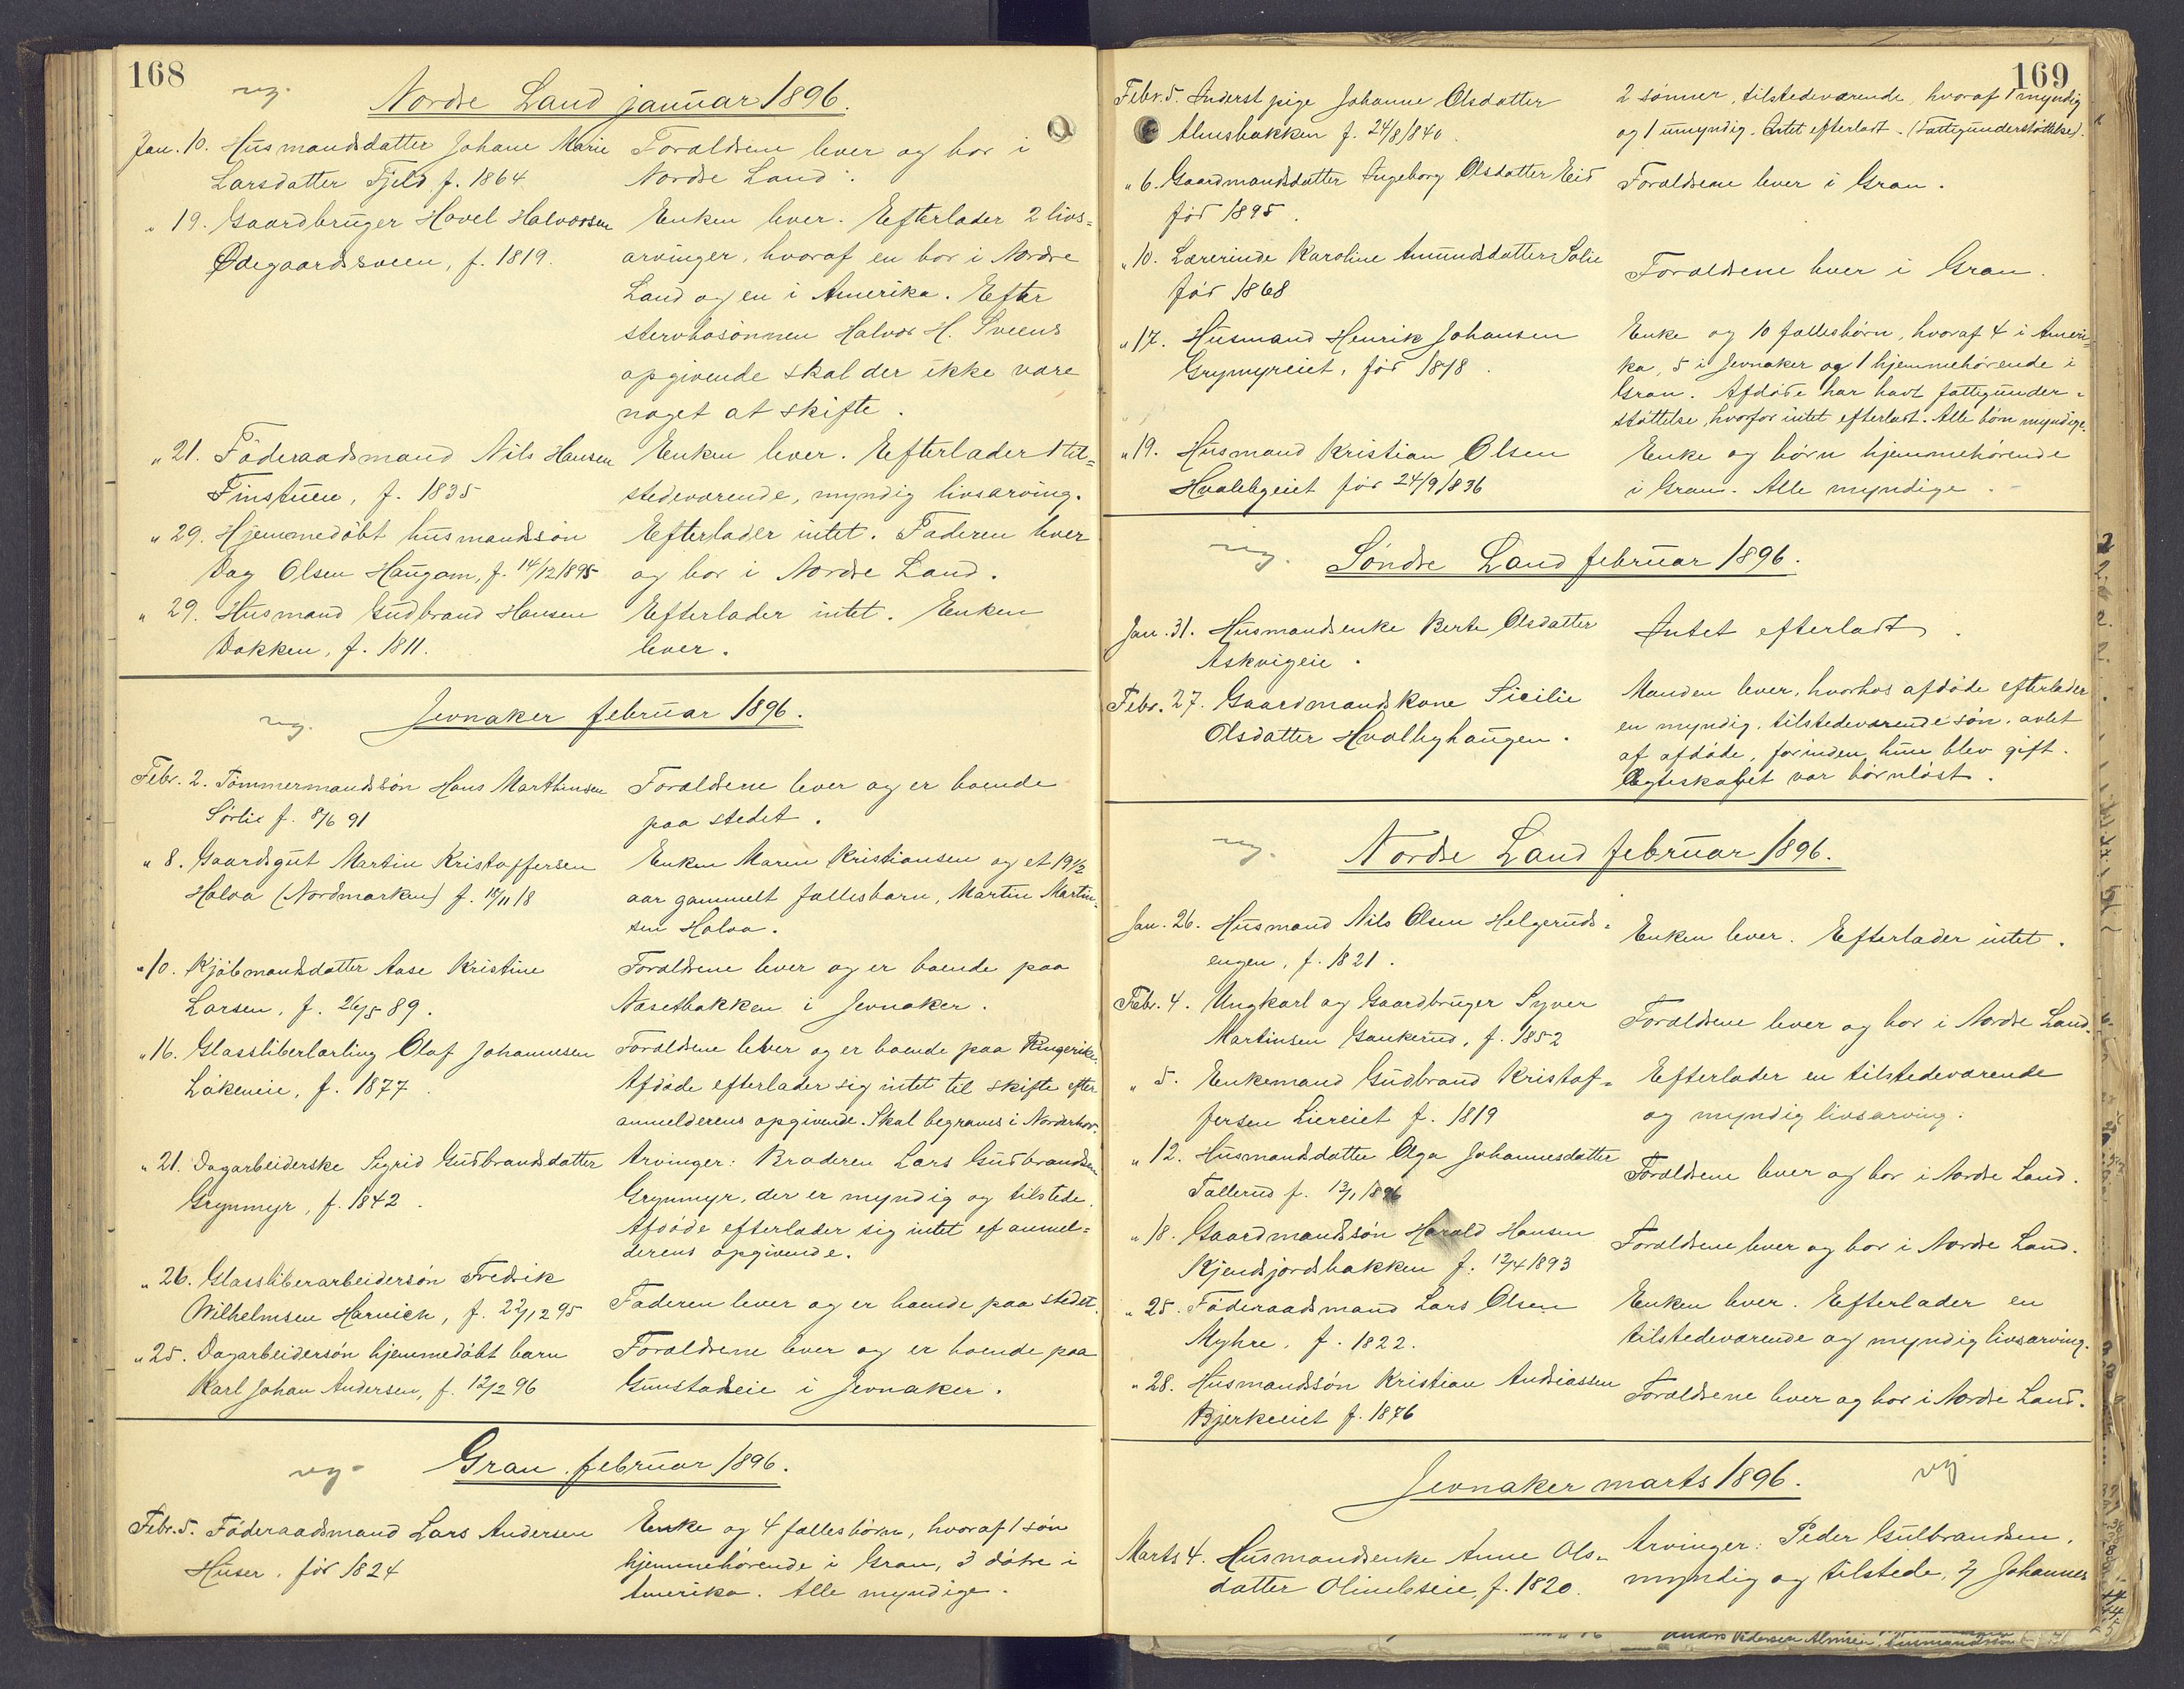 168
ng.
Nordre Land januar 1896.
Jan. 10. Husmandsdatter Johane Marie
Larsdatter Fjeld f. 1864
Forældrene lever og bor i
Nordre Land.
" 19. Gaardbruger Hovel Halvorsen
Ødegaardssveen, f. 1819.
Enken lever. Efterlader 2 livs=
arvinger, hvoraf en bor i Nordre
Land og en i Amerika. Efter
stervbosønnen Halvor H. Sveens
opgivende skal der ikke være
noget at skifte.
" 21. Föderaadsmand Nils Hansen
Finstuen, f. 1835
Enken lever. Efterlader 1 til=
stedeværende, myndig livsarving.
" 29. Hjemmedöbt husmandssön
Dag Olsen Haugom, f. 14/12 1895
Efterlader intet. Faderen lever
og bor i Nordre Land.
" 29. Husmand Gudbrand Hansen
Dokken, f. 1811.
Efterlader intet. Enken
lever.
ng.
Jevnaker februar 1896.
Febr. 2. Tömmermandssön Hans Marthinsen
Sörlie f. 8/6 91
Forældrene lever og er boende
paa stedet.
" 8. Gaardsgut Martin Kristoffersen
Holoa (Nordmarken) f. 18/11 18
Enken Maren Kristiansen og et 19 1/2
aar gammelt fællesbarn, Martin Martin=
sen Holoa.
" 10. Kjöbmandsdatter Aase Kristine
Larsen, f. 26/5 89.
Forældrene lever og er boende paa
Næsetbakken i Jevnaker.
" 16. Glassliberlærling Olaf Johannesen
Lökeneie, f. 1877.
Forældrene lever og er boende paa Ringerike.
Afdöde efterlader sig intet til skifte efter
anmelderens opgivende. Skal begraves i Norderhov.
" 21. Dagarbeiderske Sigrid Gudbrandsdatter
Grynmyr, f. 1842.
Arvinger: Broderen Lars Gudbrandsen
Grynmyr, der er myndig og tilstede.
Afdöde efterlader sig intet ef anmel=
derens opgivende.
" 26. Glassliberarbeidersön Fredrik
Wilhelmsen Harnich, f. 22/12 95
Faderen lever og er boende paa stedet.
" 25. Dagarbeidersön hjemmedöbt barn
Karl Johan Andersen, f. 12/2 96
Forældrene lever og er boende paa
Gunstadeie i Jevnaker.
ng.
Gran februar 1896.
Febr. 5. Föderaadsmand Lars Andersen
Huser, för 1824
Enke og 4 fællesbörn, hvoraf 1 sön
hjemmehörende i Gran, 3 dötre i
Amerika. Alle myndige.
169
Febr. 5. Inderst pige Johanne Olsdatter
Almsbakken f. 24/8 1840.
2 sönner, tilstedeværende, hvoraf 1 myndig
og 1 umyndig. Intet efterladt. (Fattigunderstöttelse).
" 6. Gaardmandsdatter Ingeborg Olsdatter Eid
för 1895.
Forældrene lever i Gran.
" 10. Lærerinde Karoline Amundsdatter Solie
för 1868
Forældrene lever i Gran.
" 17. Husmand Henrik Johansen
Grymyreiet, för 1818.
Enke og 10 fællesbörn, hvoraf 4 i Ameri=
ka, 5 i Jevnaker og 1 hjemmehörende i
Gran. Afdöde har havt fattigunder=
stöttelse, hvorfor intet efterladt. Alle börn myndige.
" 19. Husmand Kristian Olsen
Hvalebyeiet för 24/9 1836
Enke og börn hjemmehörende
i Gran. Alle myndige.
ng.
Söndre Land februar 1896.
Jan. 31. Husmandsenke Berte Olsdatter
Askvigeie.
Intet efterladt.
Febr. 27. Gaardmandskone Sicilie
Olsdatter Hvalbyhaugen.
Manden lever, hvorhos afdöde efterlader
en myndig, tilstedeværende sön, avlet
af afdöde, forinden hun blev gift.
Ægteskabet var börnlöst.
ng.
Nordre Land februar 1896.
Jan. 26. Husmand Nils Olsen Helgeruds=
engen, f. 1821.
Enken lever. Efterlader intet.
Febr. 4. Ungkarl og Gaardbruger Syver
Martinsen Gaukerud, f. 1852
Forældrene lever og bor i Nordre Land.
" 5. Enkemand Gudbrand Kristof=
fersen Liereiet f. 1819
Efterlader en tilstedeværende
og myndig livsarving.
" 12. Husmandsdatter Olga Johannesdatter
Tollerud f. 13/1 1896
Forældrene lever og bor i Nordre Land.
" 18. Gaardmandssön Harald Hansen
Kjendsjordsbakken f. 12/4 1893
Forældrene lever og bor i Nordre Land.
" 25. Föderaadsmand Lars Olsen
Myhre, f. 1822.
Enken lever. Efterlader en
tilstedeværende og myndig livsarving.
" 28. Husmandssön Kristian Andriassen
Bjerkeeiet f. 1876
Forældrene lever og bor i Nordre Land.
Jevnaker marts 1896.
ng
Marts 4. Husmandsenke Anne Ols=
datter Olimbseie, f. 1820.
Arvinger: Peder Gulbrandsen,
myndig og tilstede, Johannes